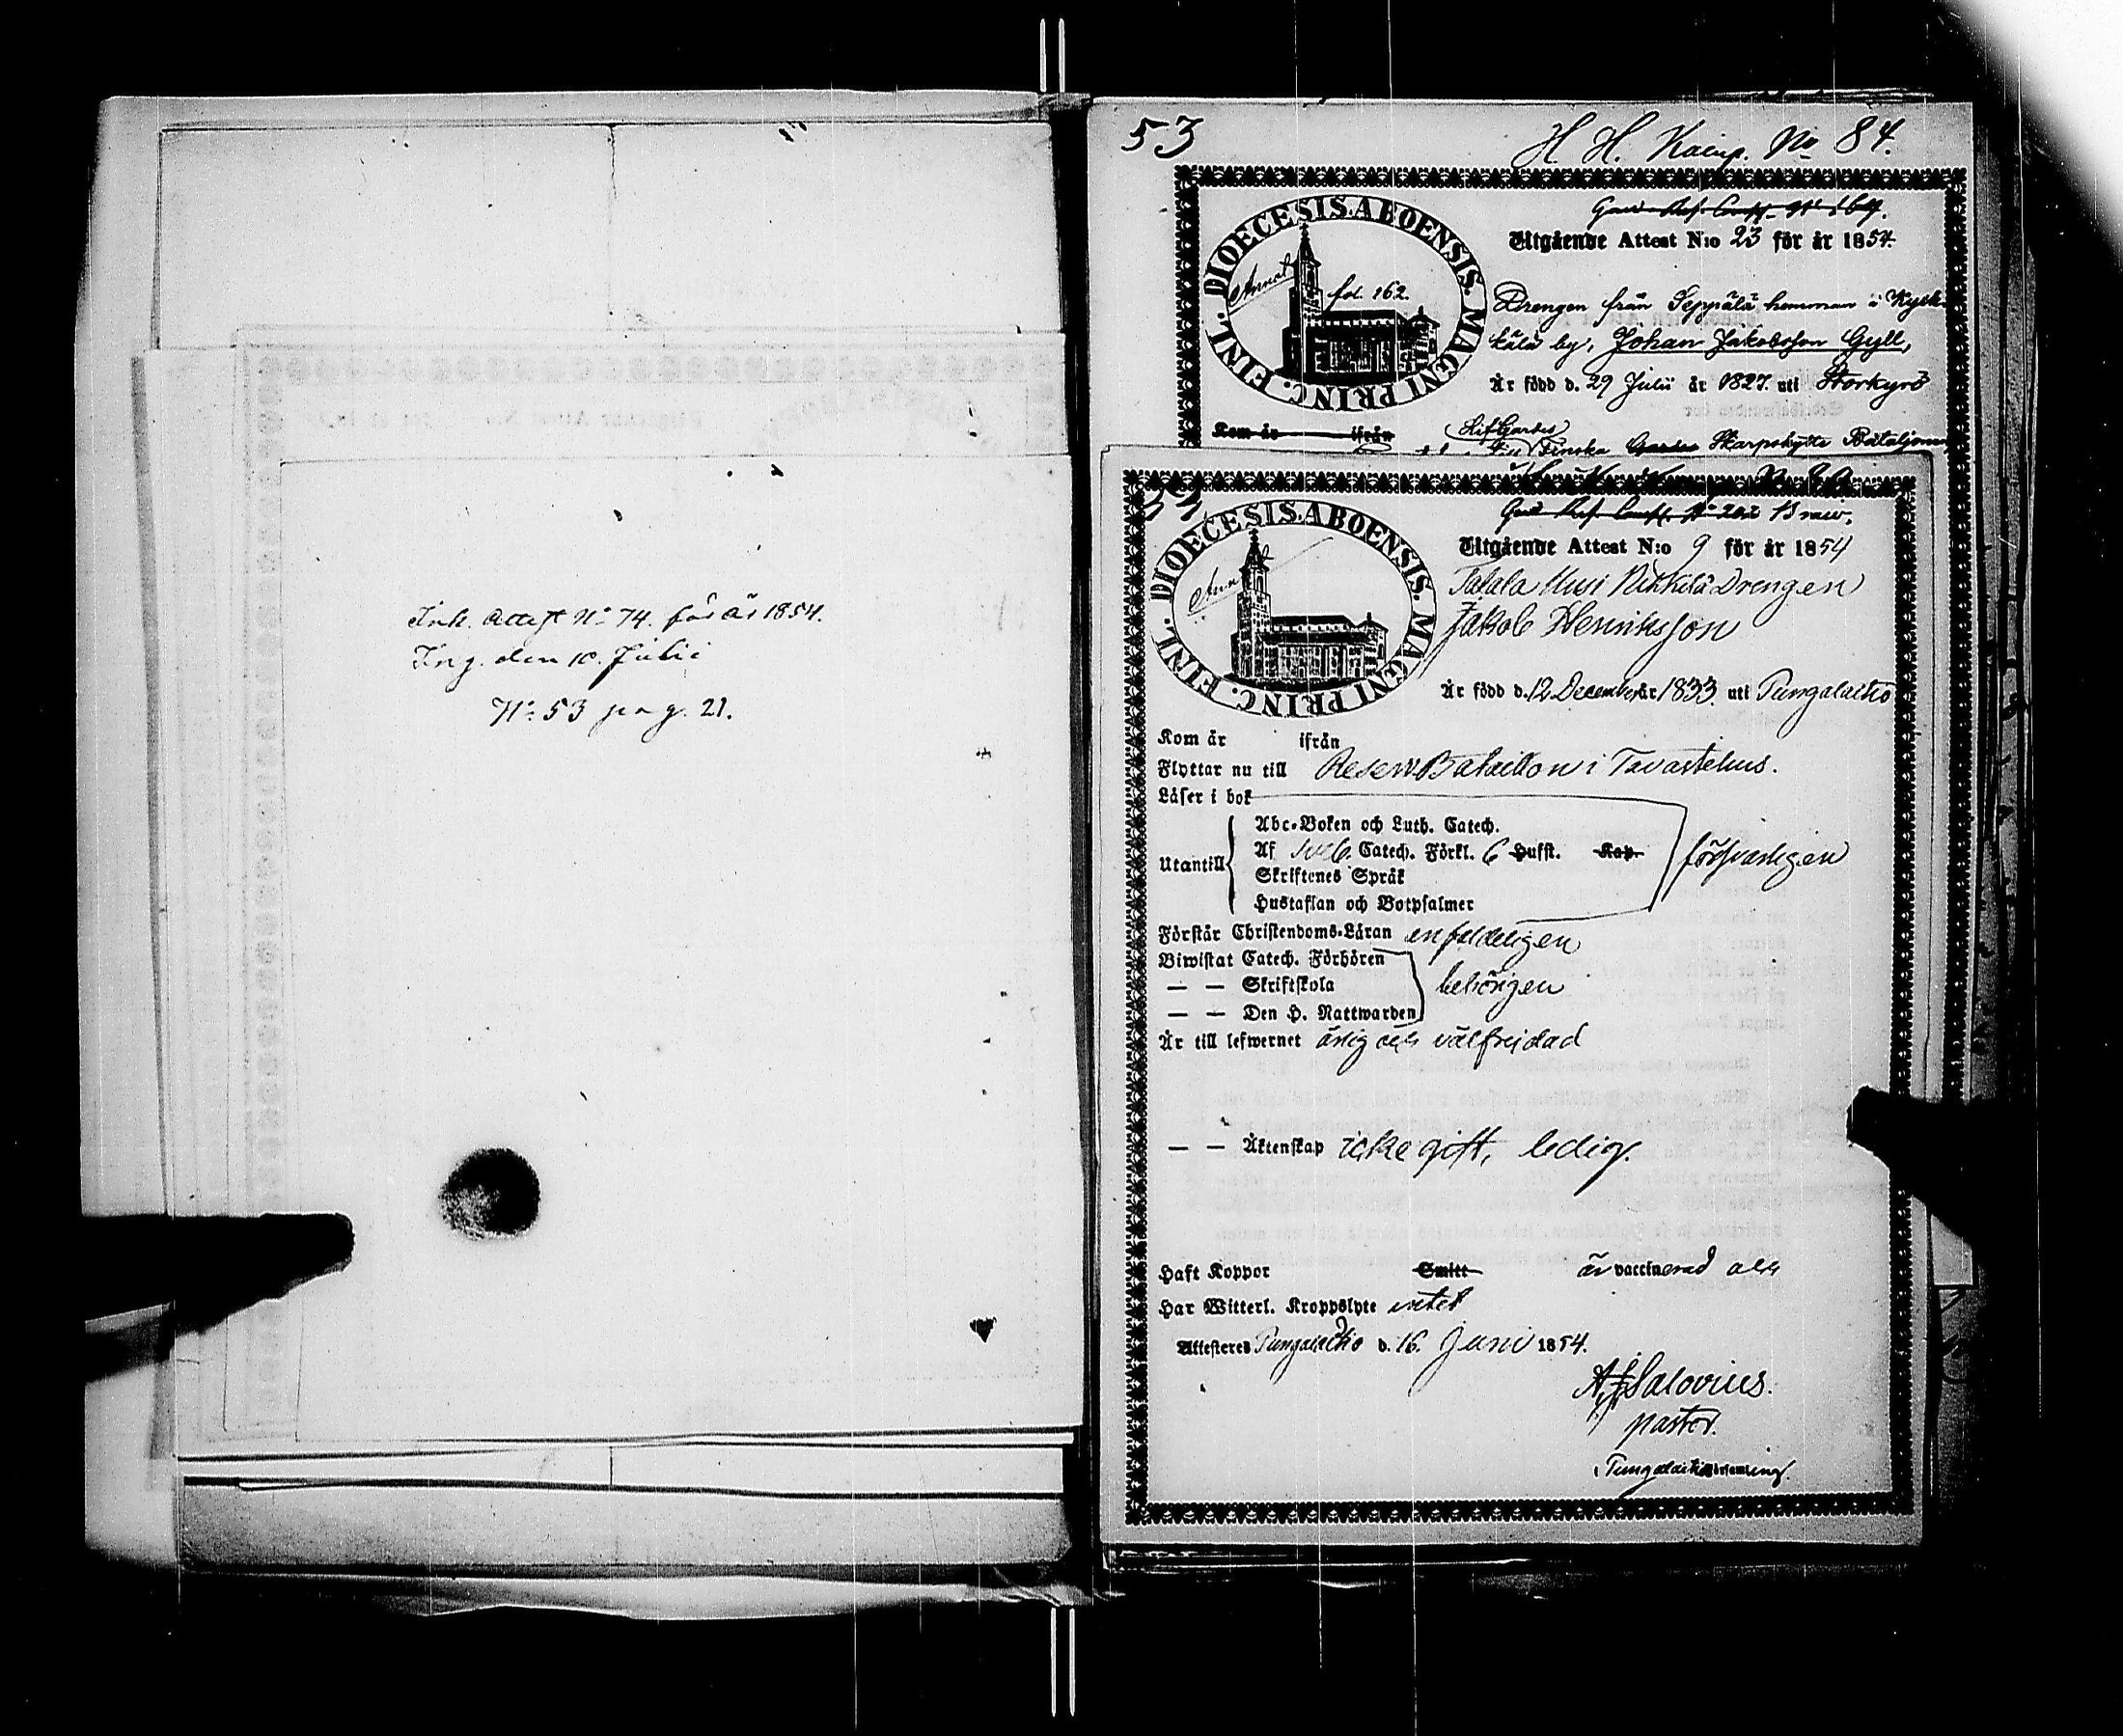 Ink. Attest No 74. för år 1854.
Ing. den 10. Julii
No 53 pag. 21.
53
H. H. Kamp. No 84.
Utgående Attest N:o 23 för år 1854.
DIOECESIS. ABOENSIS. MAGNI PRINC. FINL.
Annot
fol. 162.
Drengen från Seppälä hemman i Kysk-
kälä by, Johan Jakobsson Gyll,
Är född d. 29 Julii år 1827. uti Storkyrö
Kom år ifrån
LifGardes
Finska Gardes Skarpskytte Bataljonen
DIOECESIS. ABOENSIS. MAGNI PRINC. FINL.
Utgående Attest N:o 9 för år 1854
Talala Uusi Nikkilä Drengen
Jakob Henriksson
Är född d. 12 December år 1833. uti Pungalaitio
Kom år ifrån
Flyttar nu till Reserv Bataillon i Tavastehus.
Läser i bok
Utantill
Abc-Boken och Luth. Catech.
Af Sveb. Catech. Förkl. 6 Hufst. Kap.
Skriftenes Språk
Hustaflan och Botpsalmer
försvarligen
Förstår Christendoms-Läran enfaldeligen
Biwistat Catech. Förhören
— — Skriftskola
— — Den H. Nattwarden
behörigen
Är till lefwernet ärlig och välfrejdad
— — Äktenskap icke gift, ledig.
Haft Koppor Smitt är vaccinerad och
Har Witterl. Kroppslyte intet
Attesteres Pungalaitio d. 16. Juni 1854.
A. J. Salovius.
pastor.
i Pungalaitio Församling.